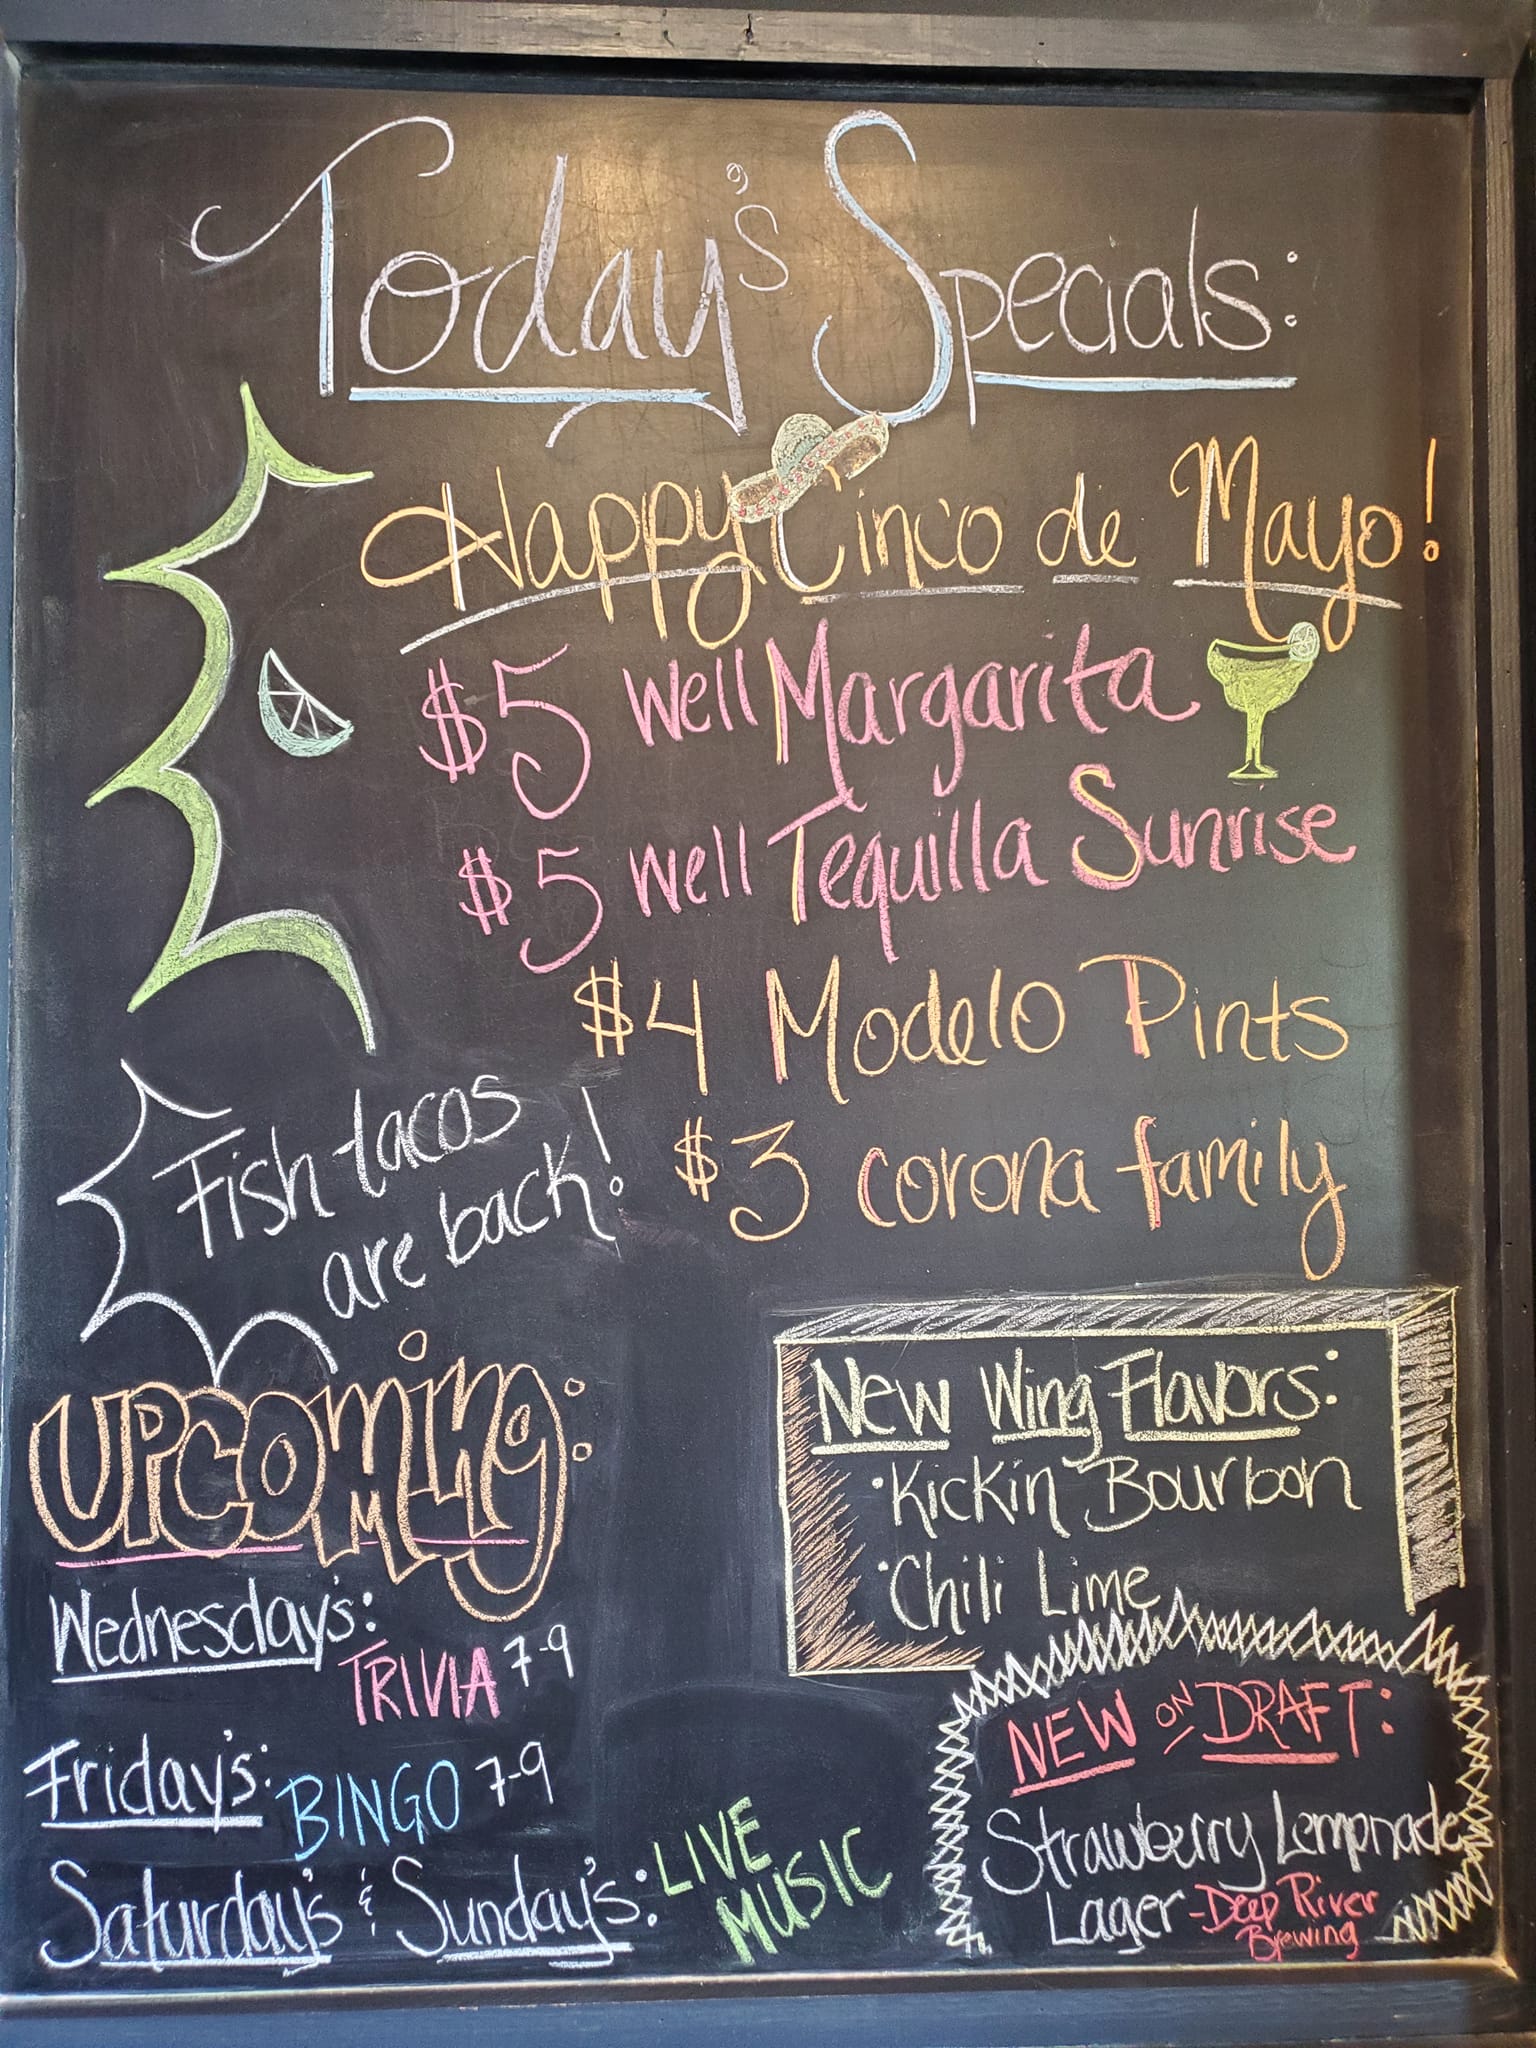 Today's Specials:
Happy Cinco de Mayo!
$5 Well Margarita
$5 Well Tequilla Sunrise
$4 Modelo Pints
$3 corona family
Fish tacos
are back!
UPCOMING:
Wednesday's:
TRIVIA 7-9
Friday's: BINGO 7-9
Saturday's & Sunday's: LIVE
MUSIC
New Wing Flavors:
• Kickin Bourbon
• Chili Lime
NEW ON DRAFT:
Strawberry Lemonade
Lager - Deep River
Brewing